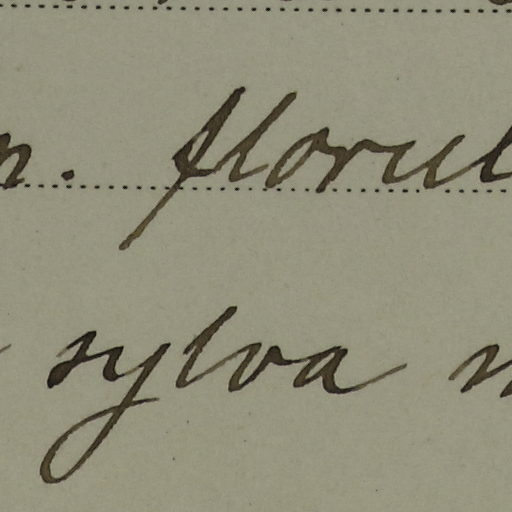 n. florul
sylva n